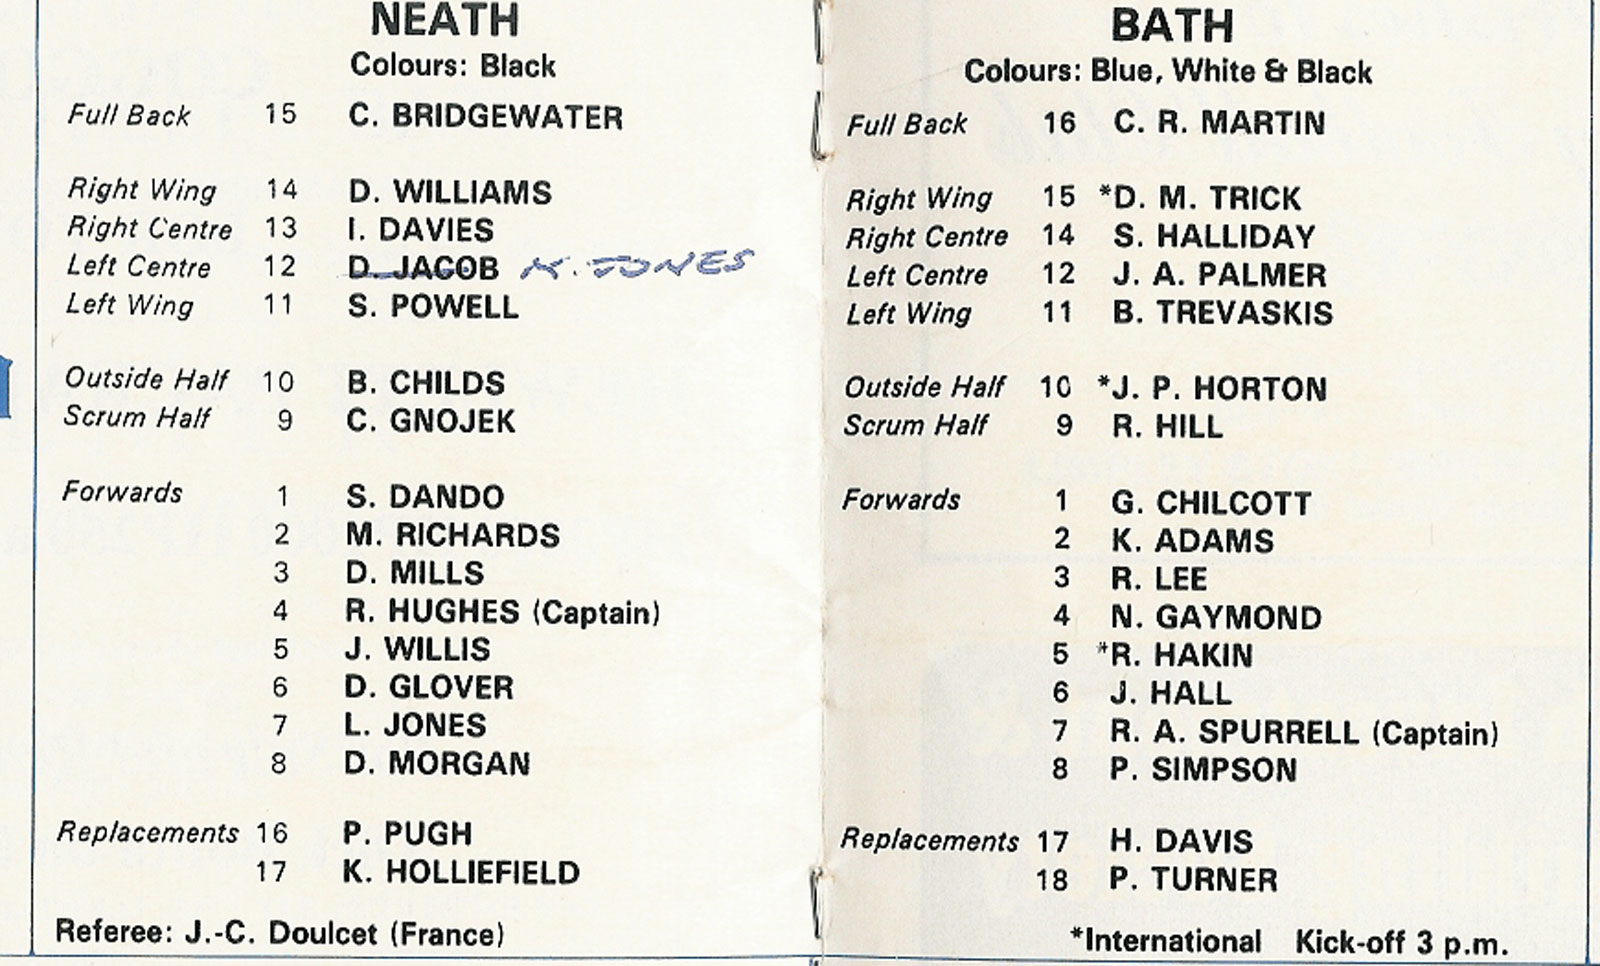 NEATH
Colours: Black
Full Back 15 C. BRIDGEWATER
Right Wing 14 D. WILLIAMS
Right Centre 13 I. DAVIES
Left Centre 12 D. JACOB K. JONES
Left Wing 11 S. POWELL
Outside Half 10 B. CHILDS
Scrum Half 9 C. GNOJEK
Forwards 1 S. DANDO
2 M. RICHARDS
3 D. MILLS
4 R. HUGHES (Captain)
5 J. WILLIS
6 D. GLOVER
7 L. JONES
8 D. MORGAN
Replacements 16 P. PUGH
17 K. HOLLIEFIELD
Referee: J.-C. Doulcet (France)
BATH
Colours: Blue, White & Black
Full Back 16 C. R. MARTIN
Right Wing 15 *D. M. TRICK
Right Centre 14 S. HALLIDAY
Left Centre 12 J. A. PALMER
Left Wing 11 B. TREVASKIS
Outside Half 10 *J. P. HORTON
Scrum Half 9 R. HILL
Forwards 1 G. CHILCOTT
2 K. ADAMS
3 R. LEE
4 N. GAYMOND
5 *R. HAKIN
6 J. HALL
7 R. A. SPURRELL (Captain)
8 P. SIMPSON
Replacements 17 H. DAVIS
18 P. TURNER
*International Kick-off 3 p.m.